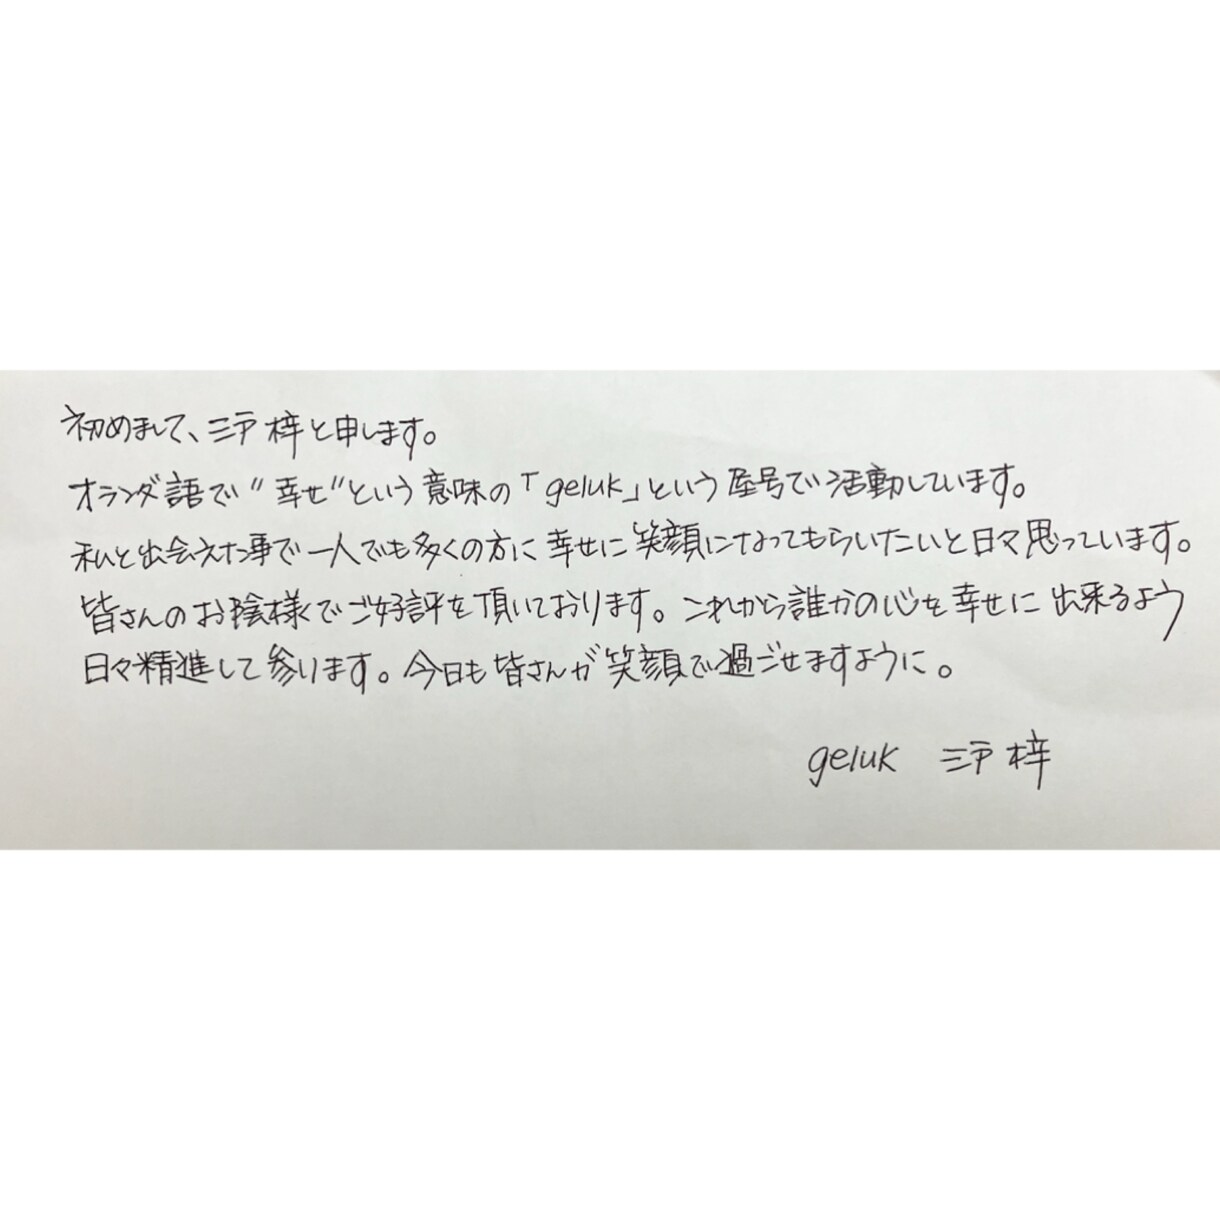 初めまして、三戸 梓と申します。
オランダ語で"幸せ"という意味の「geluk」という屋号で活動しています。
私と出会えた事で一人でも多くの方に幸せに笑顔になってもらいたいと日々思っています。
皆さんのお陰様でご好評を頂いております。これから誰かの心を幸せに出来るよう
日々精進して参ります。今日も皆さんが笑顔で過ごせますように。
geluk 三戸 梓